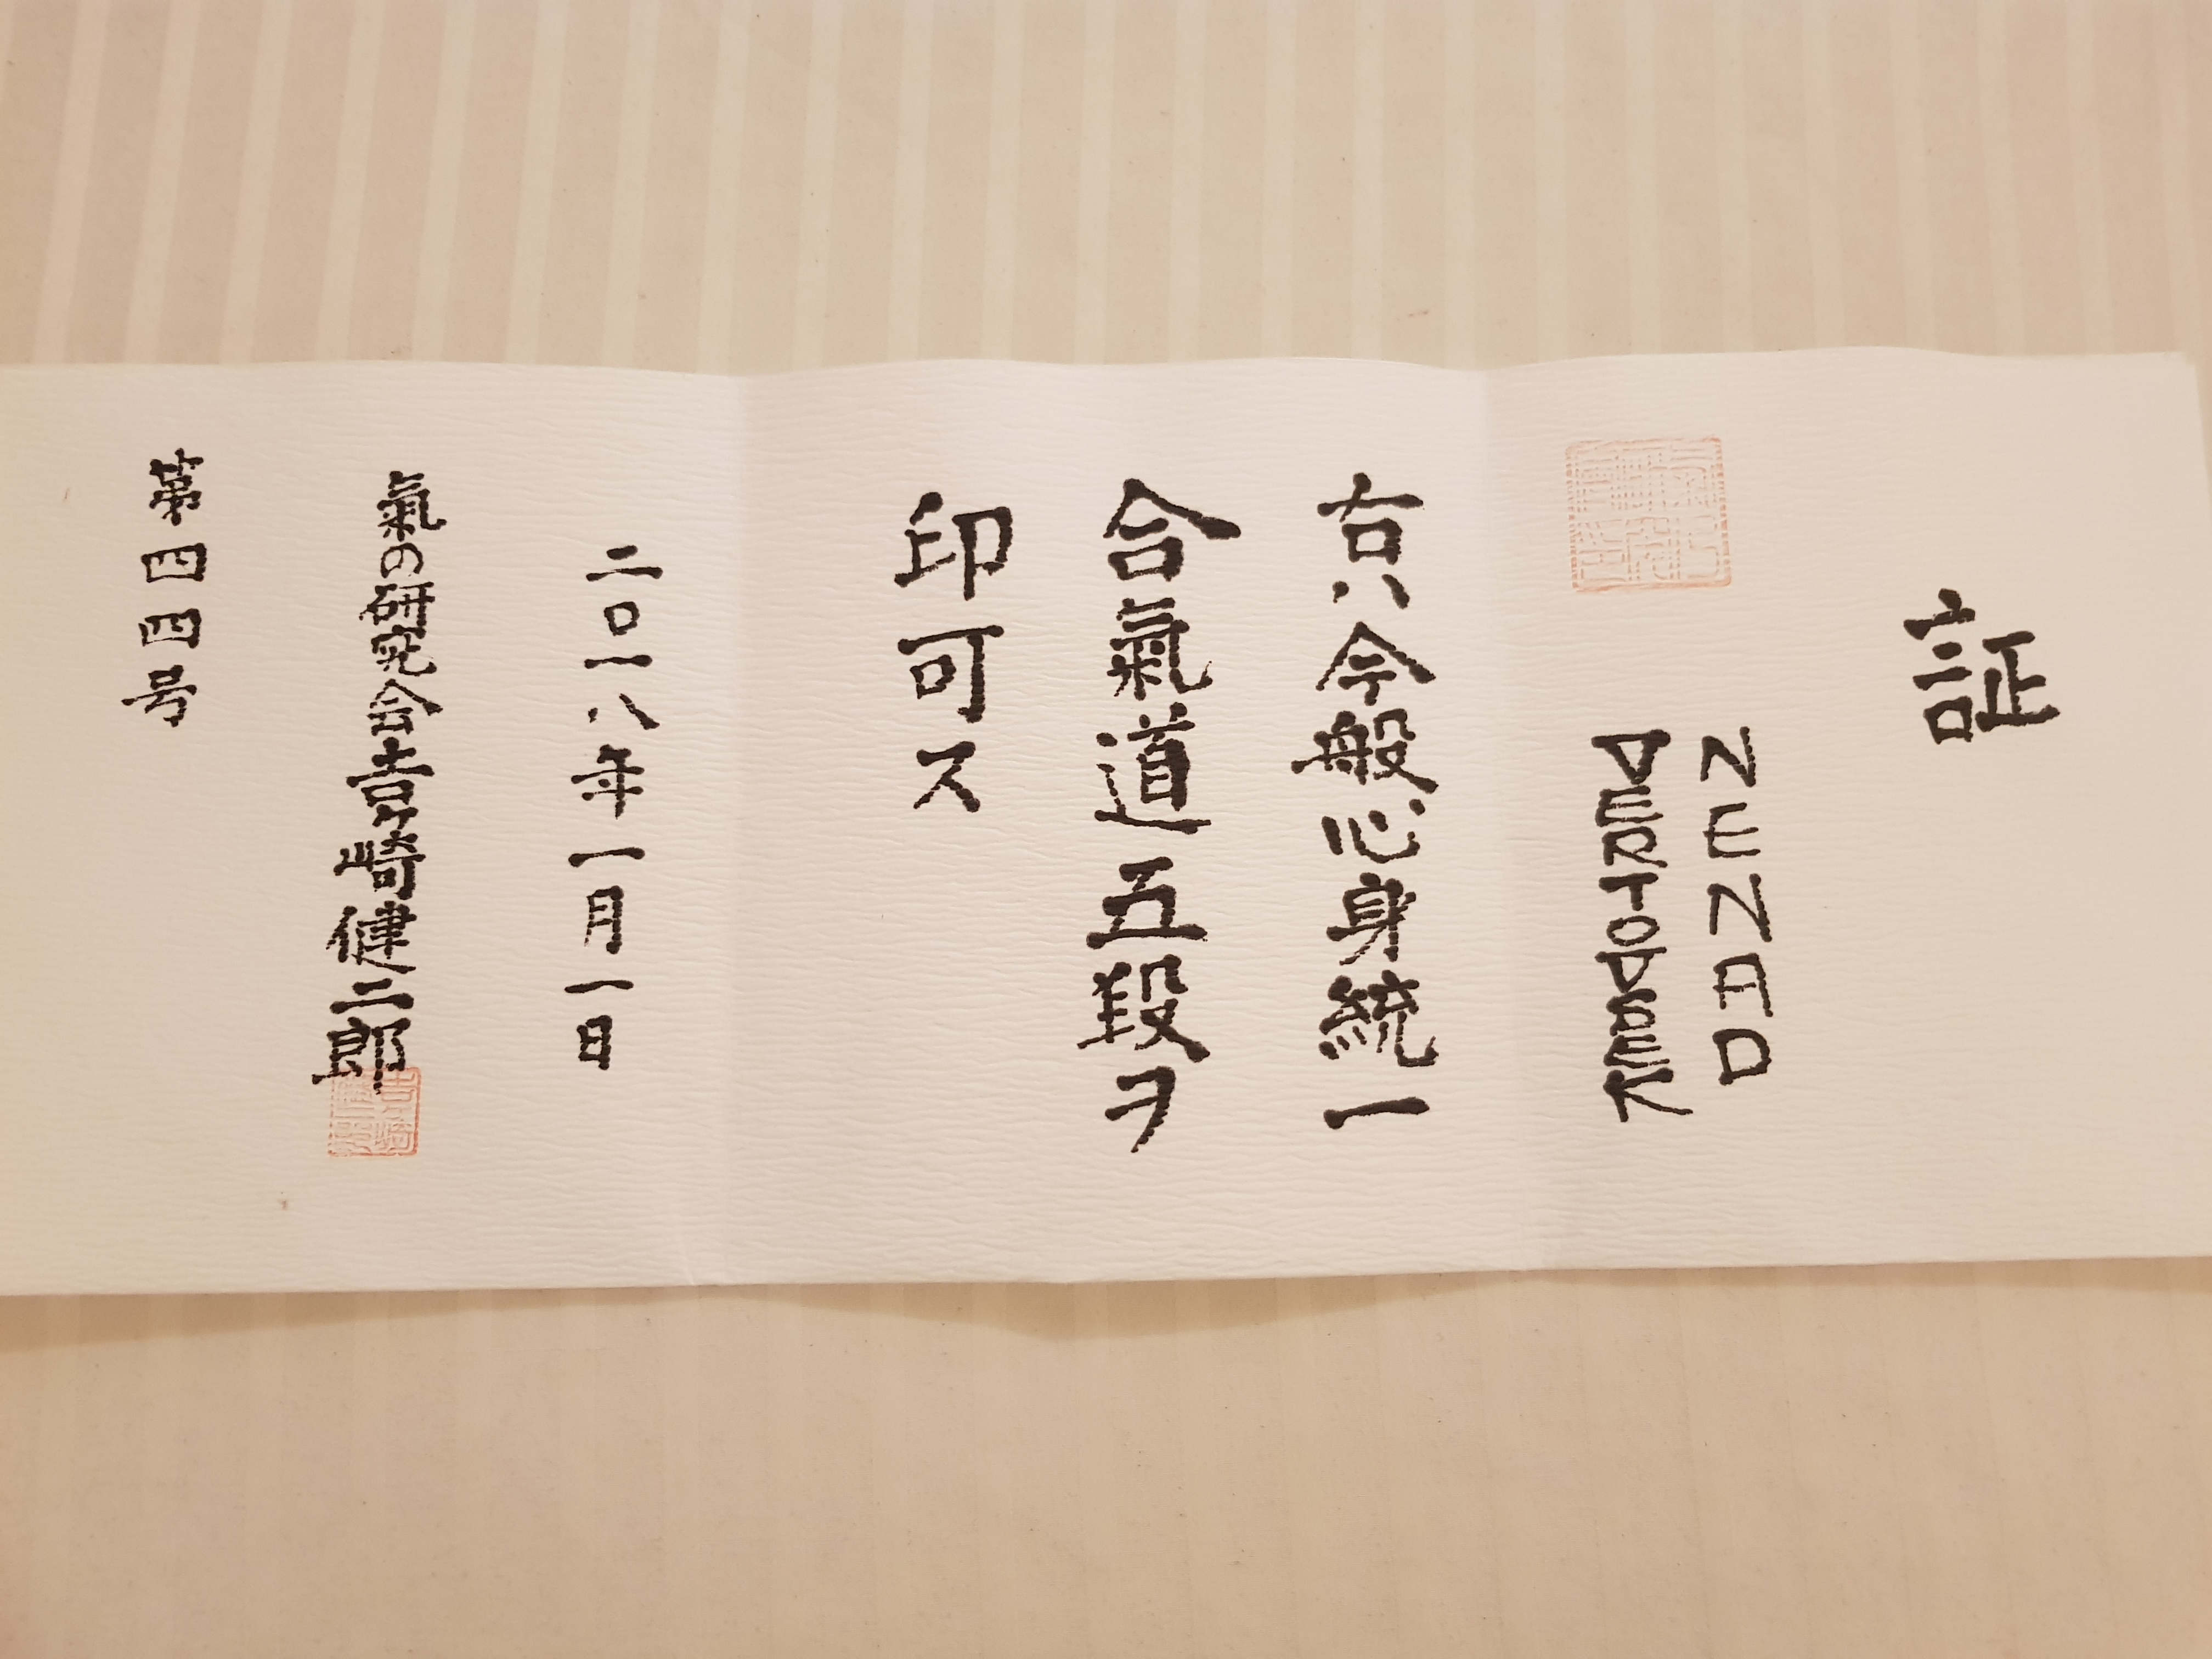 証
NENAD
VERTOVŠEK
右ハ今般心身統一
合氣道五段ヲ
印可ス
二〇一八年一月一日
氣の研究会 吉崎健二郎
第四四号